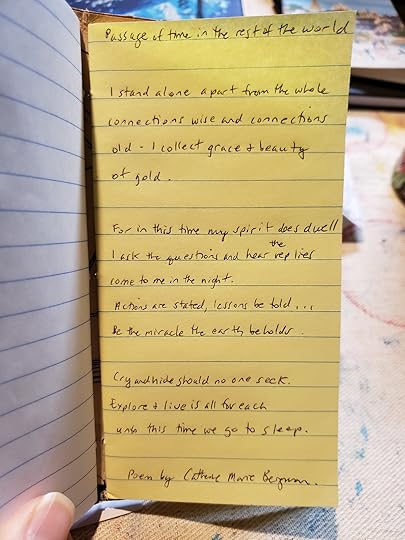 Passage of time in the rest of the world
I stand alone apart from the whole
connections wise and connections
old - I collect grace & beauty
of gold.
For in this time my spirit does dwell
I ask the questions and hear the replies
come to me in the night.
Actions are stated, lessons be told...
Be the miracle the earth beholds.
Cry and hide should no one seek.
Explore & live is all for each
unto this time we go to sleep.
Poem by Catherine Marie